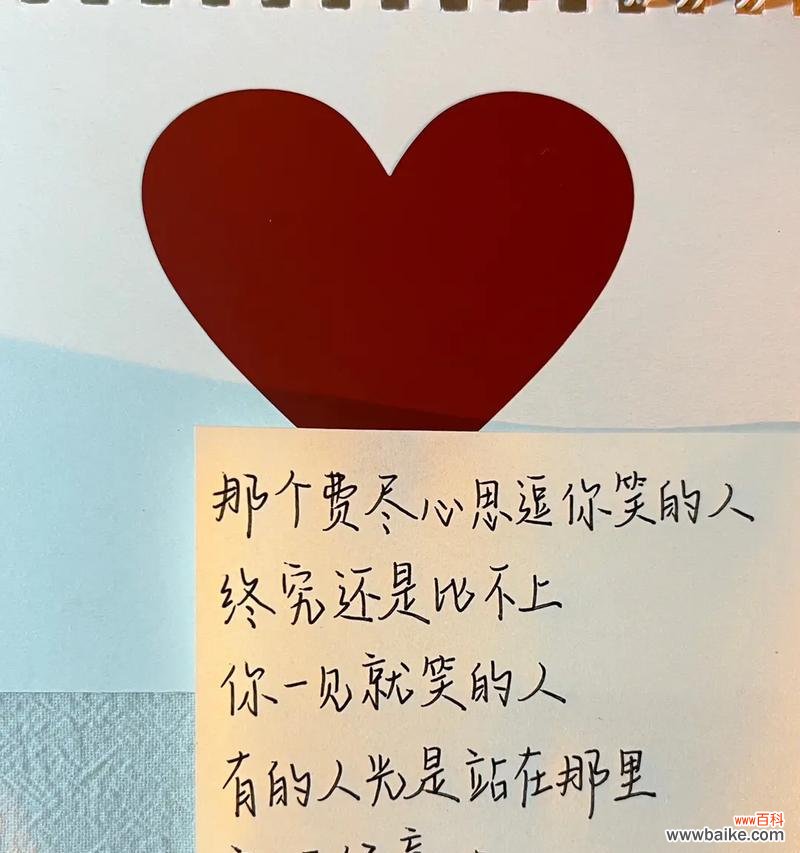 那个费尽心思逗你笑的人
终究还是比不上
你一见就笑的人
有的人光是站在那里
www百科
www.baike.com